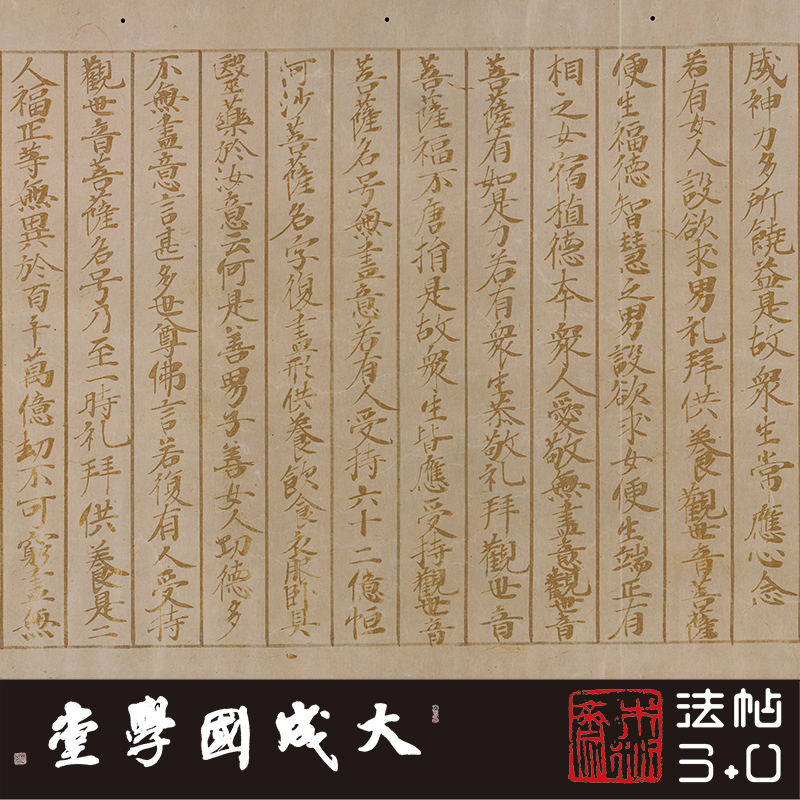 威神力多所饒益是故衆生常應心念
若有女人設欲求男礼拜供養觀世音菩薩
便生福德智慧之男設欲求女便生端正有
相之女宿植德本衆人愛敬無盡意觀世音
菩薩有如是力若有衆生恭敬礼拜觀世音
菩薩福不唐捐是故衆生皆應受持觀世音
菩薩名号無盡意若有人受持六十二億恒
河沙菩薩名字復盡形供養飲食衣服卧具
醫藥於汝意云何是善男子善女人功德多
不無盡意言甚多世尊佛言若復有人受持
觀世音菩薩名号乃至一時礼拜供養是二
人福正等無異於百千萬億劫不可窮盡無
大成國學堂
法帖
3.0